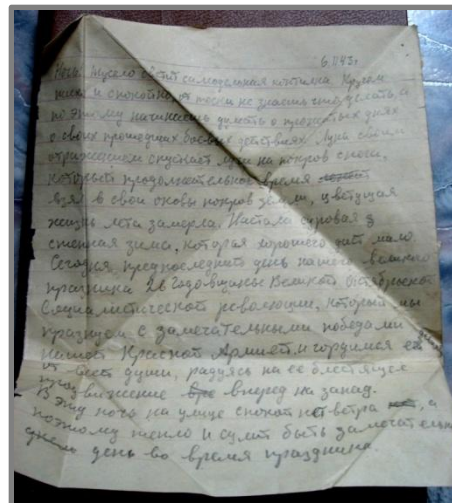 6.XI43г
Ночь. Тускло светит самодельная коптилка. Кругом
тихо и спокойно, от тоски не знаешь что делать, а
поэтому начинаешь думать о прожитых днях
о своих прошедших боевых действиях. Луна своим
отражением спускает лучи на покров снега,
который продолжительное время
взял в свои оковы покров земли, цветущая
жизнь лета замерла. Настала суровая
снежная зима, которая хорошего даёт мало
Сегодня, предпоследний день нашего великого
праздника 26 годовщины Великой Октябрьской
Социалистической революции, который мы
празднуем с замечательными победами
нашей Красной Армией, и гордимся ей
от всей души, радуясь на её блестящее
продвижение вперед на запад.
В эту ночь на улице спокой нет ветра, а
поэтому тепло и сулит быть замечательным
днем день во время праздника.